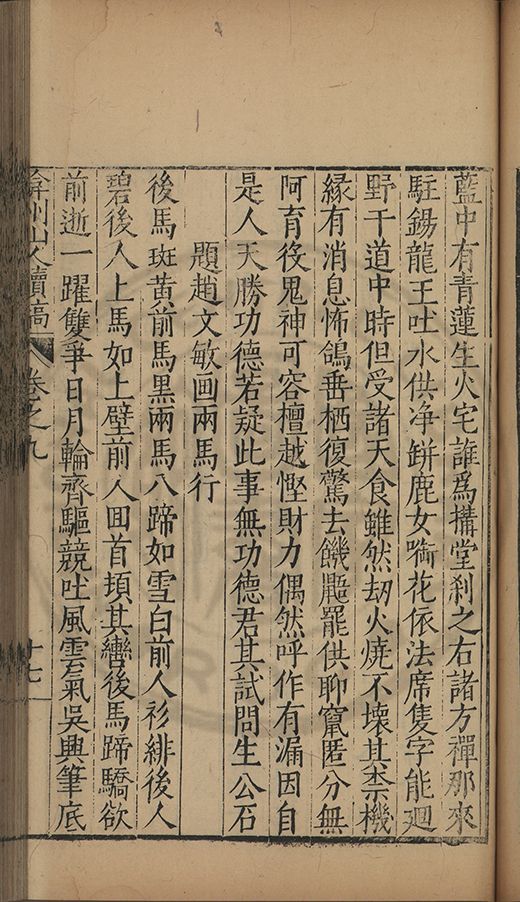 藍中有青蓮生火宅誰爲搆堂刹之右諸方禪那來
駐錫龍王吐水供净缾鹿女㗸花依法席隻字能廻
野干道中時但受諸天食雖然刼火燒不壞其柰機
緣有消息怖鴿垂栖復驚去饑鼯罷供聊竄匿分無
阿育役鬼神可容檀越慳財力偶然呼作有漏因自
是人天勝功德若疑此事無功德君其試問生公石
題趙文敏画兩馬行
後馬斑黃前馬黑兩馬八蹄如雪白前人衫緋後人
碧後人上馬如上壁前人囬首頊其轡後馬蹄驕欲
前逝一躍雙爭日月輪齊驅競吐風雲氣吳興筆底
弇州山人續稿 卷之九 十七